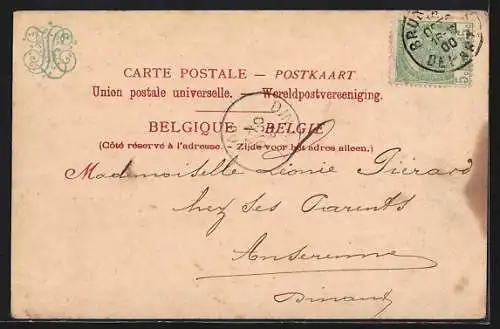 CARTE POSTALE — POSTKAART
Union postale universelle. — Wereldpostvereeniging.
BELGIQUE — BELGIË
(Côté réservé à l'adresse. — Zijde voor het adres alleen.)
Mademoiselle Léonie Piérard
chez ses Parents
Anseremme
Dinant